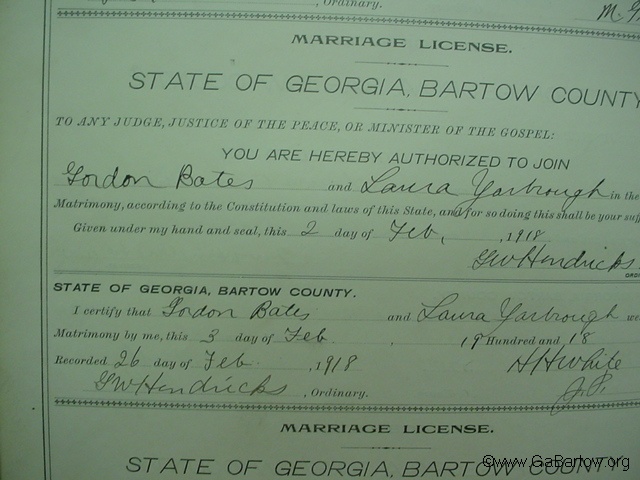 , Ordinary.
MARRIAGE LICENSE.
STATE OF GEORGIA, BARTOW COUNTY
TO ANY JUDGE, JUSTICE OF THE PEACE, OR MINISTER OF THE GOSPEL:
YOU ARE HEREBY AUTHORIZED TO JOIN
Gordon Bates and Laura Yarbrough in the
Matrimony, according to the Constitution and laws of this State, and for so doing this shall be your suf
Given under my hand and seal, this 2 day of Feb, , 1918
GW Hendricks
STATE OF GEORGIA, BARTOW COUNTY.
I certify that Gordon Bates and Laura Yarbrough we
Matrimony by me, this 3 day of Feb , 19 Hundred and 18
Recorded 26 day of Feb. , 1918 H H White
GW Hendricks , Ordinary. J.P.
MARRIAGE LICENSE.
STATE OF GEORGIA, BARTOW COUNTY
© www.GaBartow.org